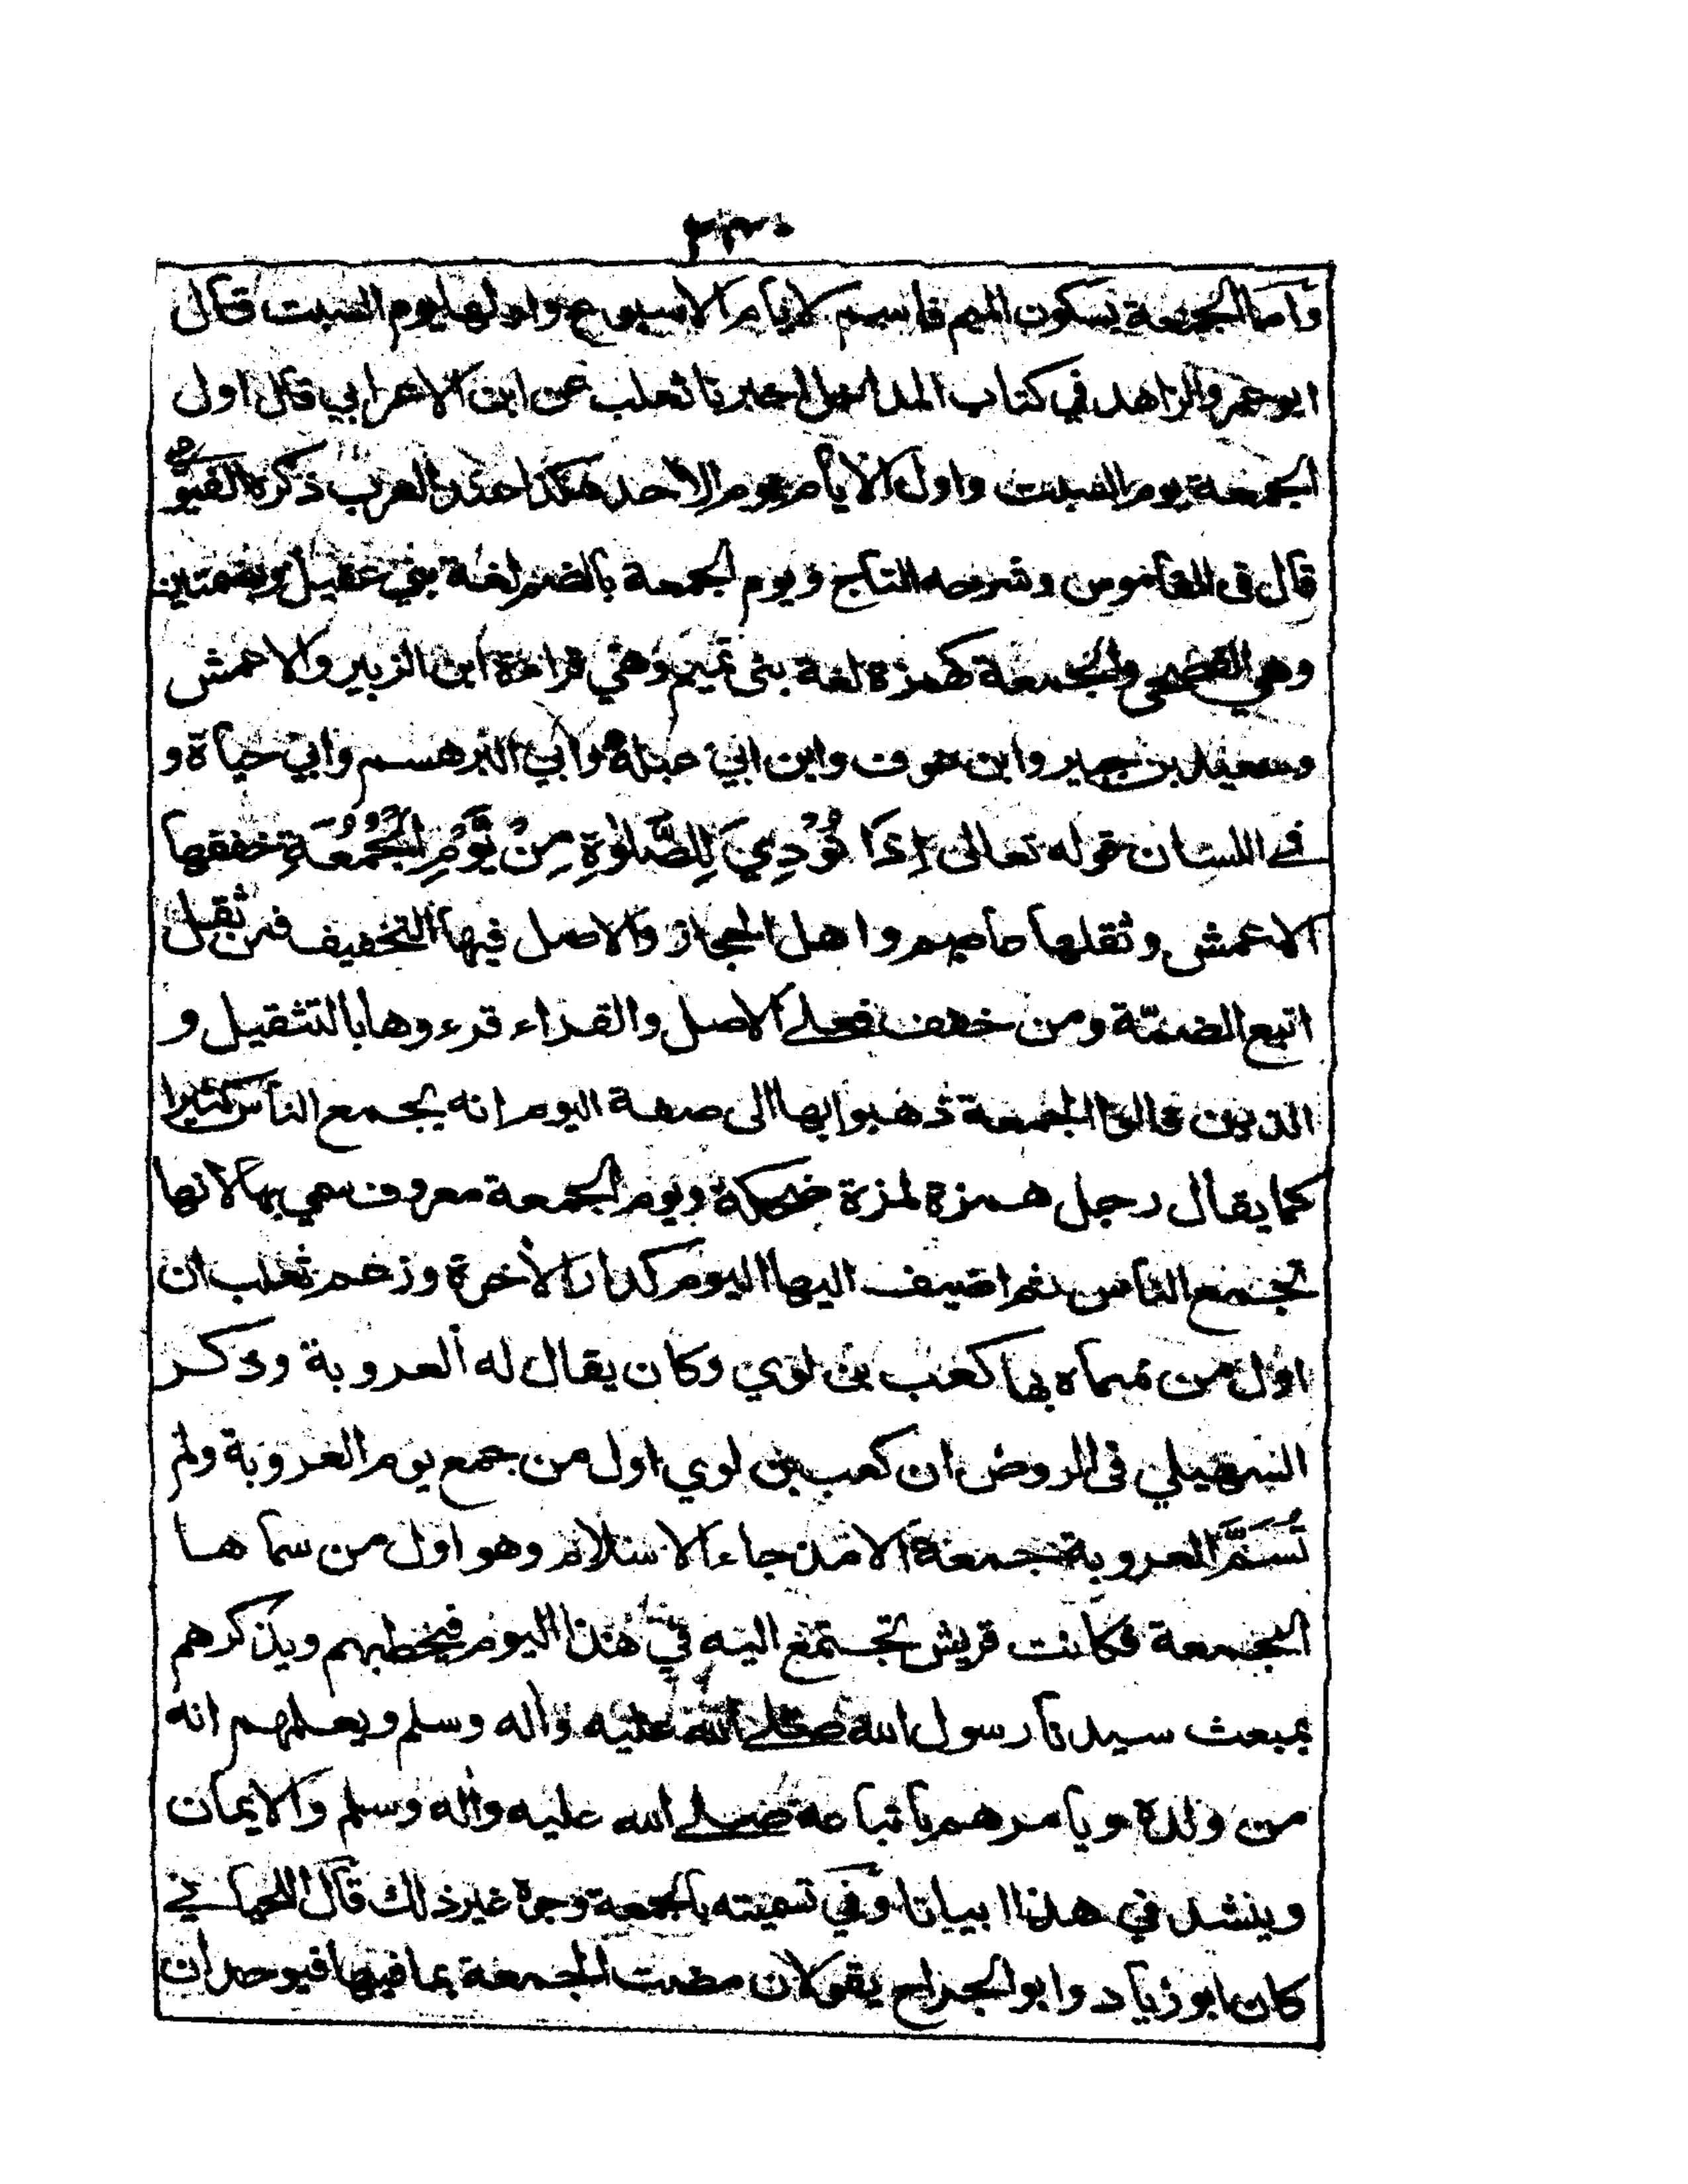 واما الجمعة بسكون الميم فاسم لايام الاسبوع واولها يوم السبت قال
ابو عمرو الزاهد في كتاب المداخل اخبرنا ثعلب عن ابن الاعرابي قال اول
الجمعة يوم السبت واول الايام يوم الاحد هكذا عند العرب ذكره الفيومي
قال فى القاموس وشرحه التاج ويوم الجمعة بالضم لغة بني عقيل وبضمتين
وهي الفصحى والجمعة كهمزة لغة بنى تميم وهي قراءة ابن الزبير والاعمش
وسعيد بن جبير وابن عوف وابن ابي عبلة وابي البرهسم وابي حياة و
في اللسان قوله تعالى اِذَا نُوْدِيَ لِلصَّلٰوةِ مِنْ يَّوْمِ الْجُمُعَةِ خففها
الاعمش وثقلها عاصم واهل الحجاز والاصل فيها التخفيف فمن ثقل
اتبع الضمة ومن خفف فعلى الاصل والقراء قرءوها بالتثقيل و
الذين قالوا الجمعة ذهبوا بها الى صفة اليوم انه يجمع الناس كثيرا
كما يقال رجل همزة لمزة ضحكة ويوم الجمعة معروف سمي بها لانها
تجمع الناس ثم اضيف اليها اليوم كدار الأخرة وزعم ثعلب ان
اول من سماه بها كعب بن لوي وكان يقال له العروبة وذكر
السهيلي فى الروض ان كعب بن لوي اول من جمع يوم العروبة ولم
تُسَمَّ العروبة جمعة الا مذ جاء الاسلام وهو اول من سما ها
الجمعة فكانت قريش تجتمع اليه في هذا اليوم فيخطبهم ويذكرهم
بمبعث سيدنا رسول الله صلى الله عليه واله وسلم ويعلمهم انه
من ولده ويامرهم باتباعه صلى الله عليه واله وسلم والايمان
وينشد في هذا ابياتا وفي تسميته بالجمعة وجوه غير ذلك قال اللحياني
كان ابو زياد وابو الجراح يقولان مضت الجمعة بما فيها فيوحدان